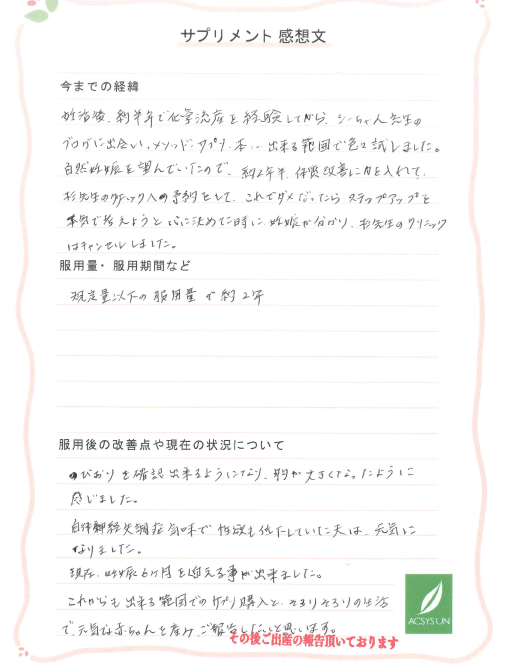 サプリメント 感想文
今までの経緯
妊治後、約半年で化学流産を経験してから、シーちゃん先生の
ブログに出会い、メソッド、サプリ、本…出来る範囲で色々試しました。
自然妊娠を望んでいたので、約2年半、体質改善に力を入れて、
杉先生のクリニックへの予約をして、これでダメだったらステップアップを
本気で考えようと心に決めてた時に、妊娠が分かり、杉先生のクリニック
はキャンセルしました。
服用量・服用期間など
規定量以下の服用量で約2年
服用後の改善点や現在の状況について
のびおりを確認出来るようになり、胸が大きくなったように
感じました。
自律神経失調症気味で性欲も低下していた夫は、元気に
なりました。
現在、妊娠6ヶ月を迎える事が出来ました。
これからも出来る範囲でのサプリ購入と、そろりそろりの生活
で、元気な赤ちゃんを産み、ご報告したいと思います。
その後ご出産の報告頂いております
ACSYSUN